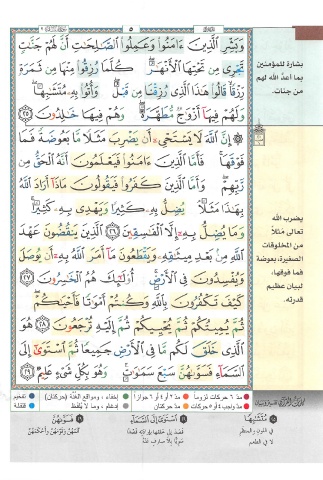 وَبَشِّرِ ٱلَّذِينَ ءَامَنُوا۟ وَعَمِلُوا۟ ٱلصَّٰلِحَٰتِ أَنَّ لَهُمْ جَنَّٰتٍ
تَجْرِى مِن تَحْتِهَا ٱلْأَنْهَٰرُ ۖ كُلَّمَا رُزِقُوا۟ مِنْهَا مِن ثَمَرَةٍ
رِّزْقًا قَالُوا۟ هَٰذَا ٱلَّذِى رُزِقْنَا مِن قَبْلُ ۖ وَأُتُوا۟ بِهِۦ مُتَشَٰبِهًا ۖ
وَلَهُمْ فِيهَآ أَزْوَٰجٌ مُّطَهَّرَةٌ ۖ وَهُمْ فِيهَا خَٰلِدُونَ ٢٥
۞ إِنَّ ٱللَّهَ لَا يَسْتَحْىِۦٓ أَن يَضْرِبَ مَثَلًا مَّا بَعُوضَةً فَمَا
فَوْقَهَا ۚ فَأَمَّا ٱلَّذِينَ ءَامَنُوا۟ فَيَعْلَمُونَ أَنَّهُ ٱلْحَقُّ مِن
رَّبِّهِمْ ۖ وَأَمَّا ٱلَّذِينَ كَفَرُوا۟ فَيَقُولُونَ مَاذَآ أَرَادَ ٱللَّهُ
بِهَٰذَا مَثَلًا ۘ يُضِلُّ بِهِۦ كَثِيرًا وَيَهْدِى بِهِۦ كَثِيرًا ۚ
وَمَا يُضِلُّ بِهِۦٓ إِلَّا ٱلْفَٰسِقِينَ ٢٦ ٱلَّذِينَ يَنقُضُونَ عَهْدَ
ٱللَّهِ مِنۢ بَعْدِ مِيثَٰقِهِۦ وَيَقْطَعُونَ مَآ أَمَرَ ٱللَّهُ بِهِۦٓ أَن يُوصَلَ
وَيُفْسِدُونَ فِى ٱلْأَرْضِ ۚ أُو۟لَٰٓئِكَ هُمُ ٱلْخَٰسِرُونَ ٢٧
كَيْفَ تَكْفُرُونَ بِٱللَّهِ وَكُنتُمْ أَمْوَٰتًا فَأَحْيَٰكُمْ ۖ
ثُمَّ يُمِيتُكُمْ ثُمَّ يُحْيِيكُمْ ثُمَّ إِلَيْهِ تُرْجَعُونَ ٢٨ هُوَ
ٱلَّذِى خَلَقَ لَكُم مَّا فِى ٱلْأَرْضِ جَمِيعًا ثُمَّ ٱسْتَوَىٰٓ إِلَى
ٱلسَّمَآءِ فَسَوَّىٰهُنَّ سَبْعَ سَمَٰوَٰتٍ ۚ وَهُوَ بِكُلِّ شَىْءٍ عَلِيمٌ ٢٩
بشارة للمؤمنين
بما أعدَّ الله لهم
من جنات.
يضرب الله
تعالى مثلاً
من المخلوقات
الصغيرة، بعوضة
فما فوقها،
لبيان عظيم
قدرته.
مد ٦ حركات لزوماً مد ٢ أو ٤ أو ٦ جوازاً إخفاء، ومواقع الغُنَّة (حركتان) تفخيم
مد واجب ٤ أو ٥ حركات مد حركتان إدغام، وما لا يُلفظ قلقلة
مُتَشَٰبِهًا
في اللون والمنظر
لا في الطعم
ٱسْتَوَىٰٓ إِلَى ٱلسَّمَآءِ
فَسَوَّىٰهُنَّ